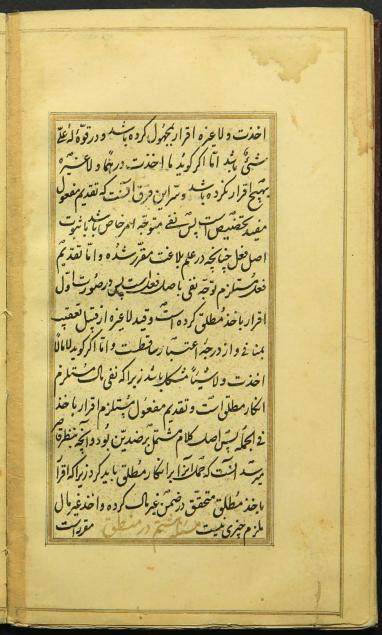 اخذت و لا غیره اقرار بمجهول کرده باشد و در قوّه له علیّ
شئ باشد امّا اگر گوید ما اخذت درهما و لا غیره
بهیچ اقرار نکرده باشد و سر این فرق آنست که تقدیم مفعول
مفید تخصیص است پس نفی متوجّه امر خاص باشد با ثبوت
اصل فعل چنانچه در علم بلاغت مقرر شده و امّا تقدیم
فعل مستلزم توجّه نفی باصل فعل است پس در صورت اوّل
اقرار باخذ مطلق کرده است و قید لا غیره از قبیل تعقیب
بمنافی و از درجهٔ اعتبار ساقطست و امّا اگر گوید لا مالا
اخذت و لا شیئا مشکل باشد زیرا که نفی مال مستلزم
انکار مطلق است و تقدیم مفعول مستلزم اقرار باخذ
فی الجمله پس اصل کلام مشتمل بر ضدین بود و آنچه بنظر قاصر
میرسد آنست که حمل آن بر انکار مطلق باید کرد زیرا که اقرار
باخذ مطلق متحقق در ضمن غیر مال کرده و اخذ غیر مال
ملزم چیزی نیست مسئله ششم در منطق مقرر است